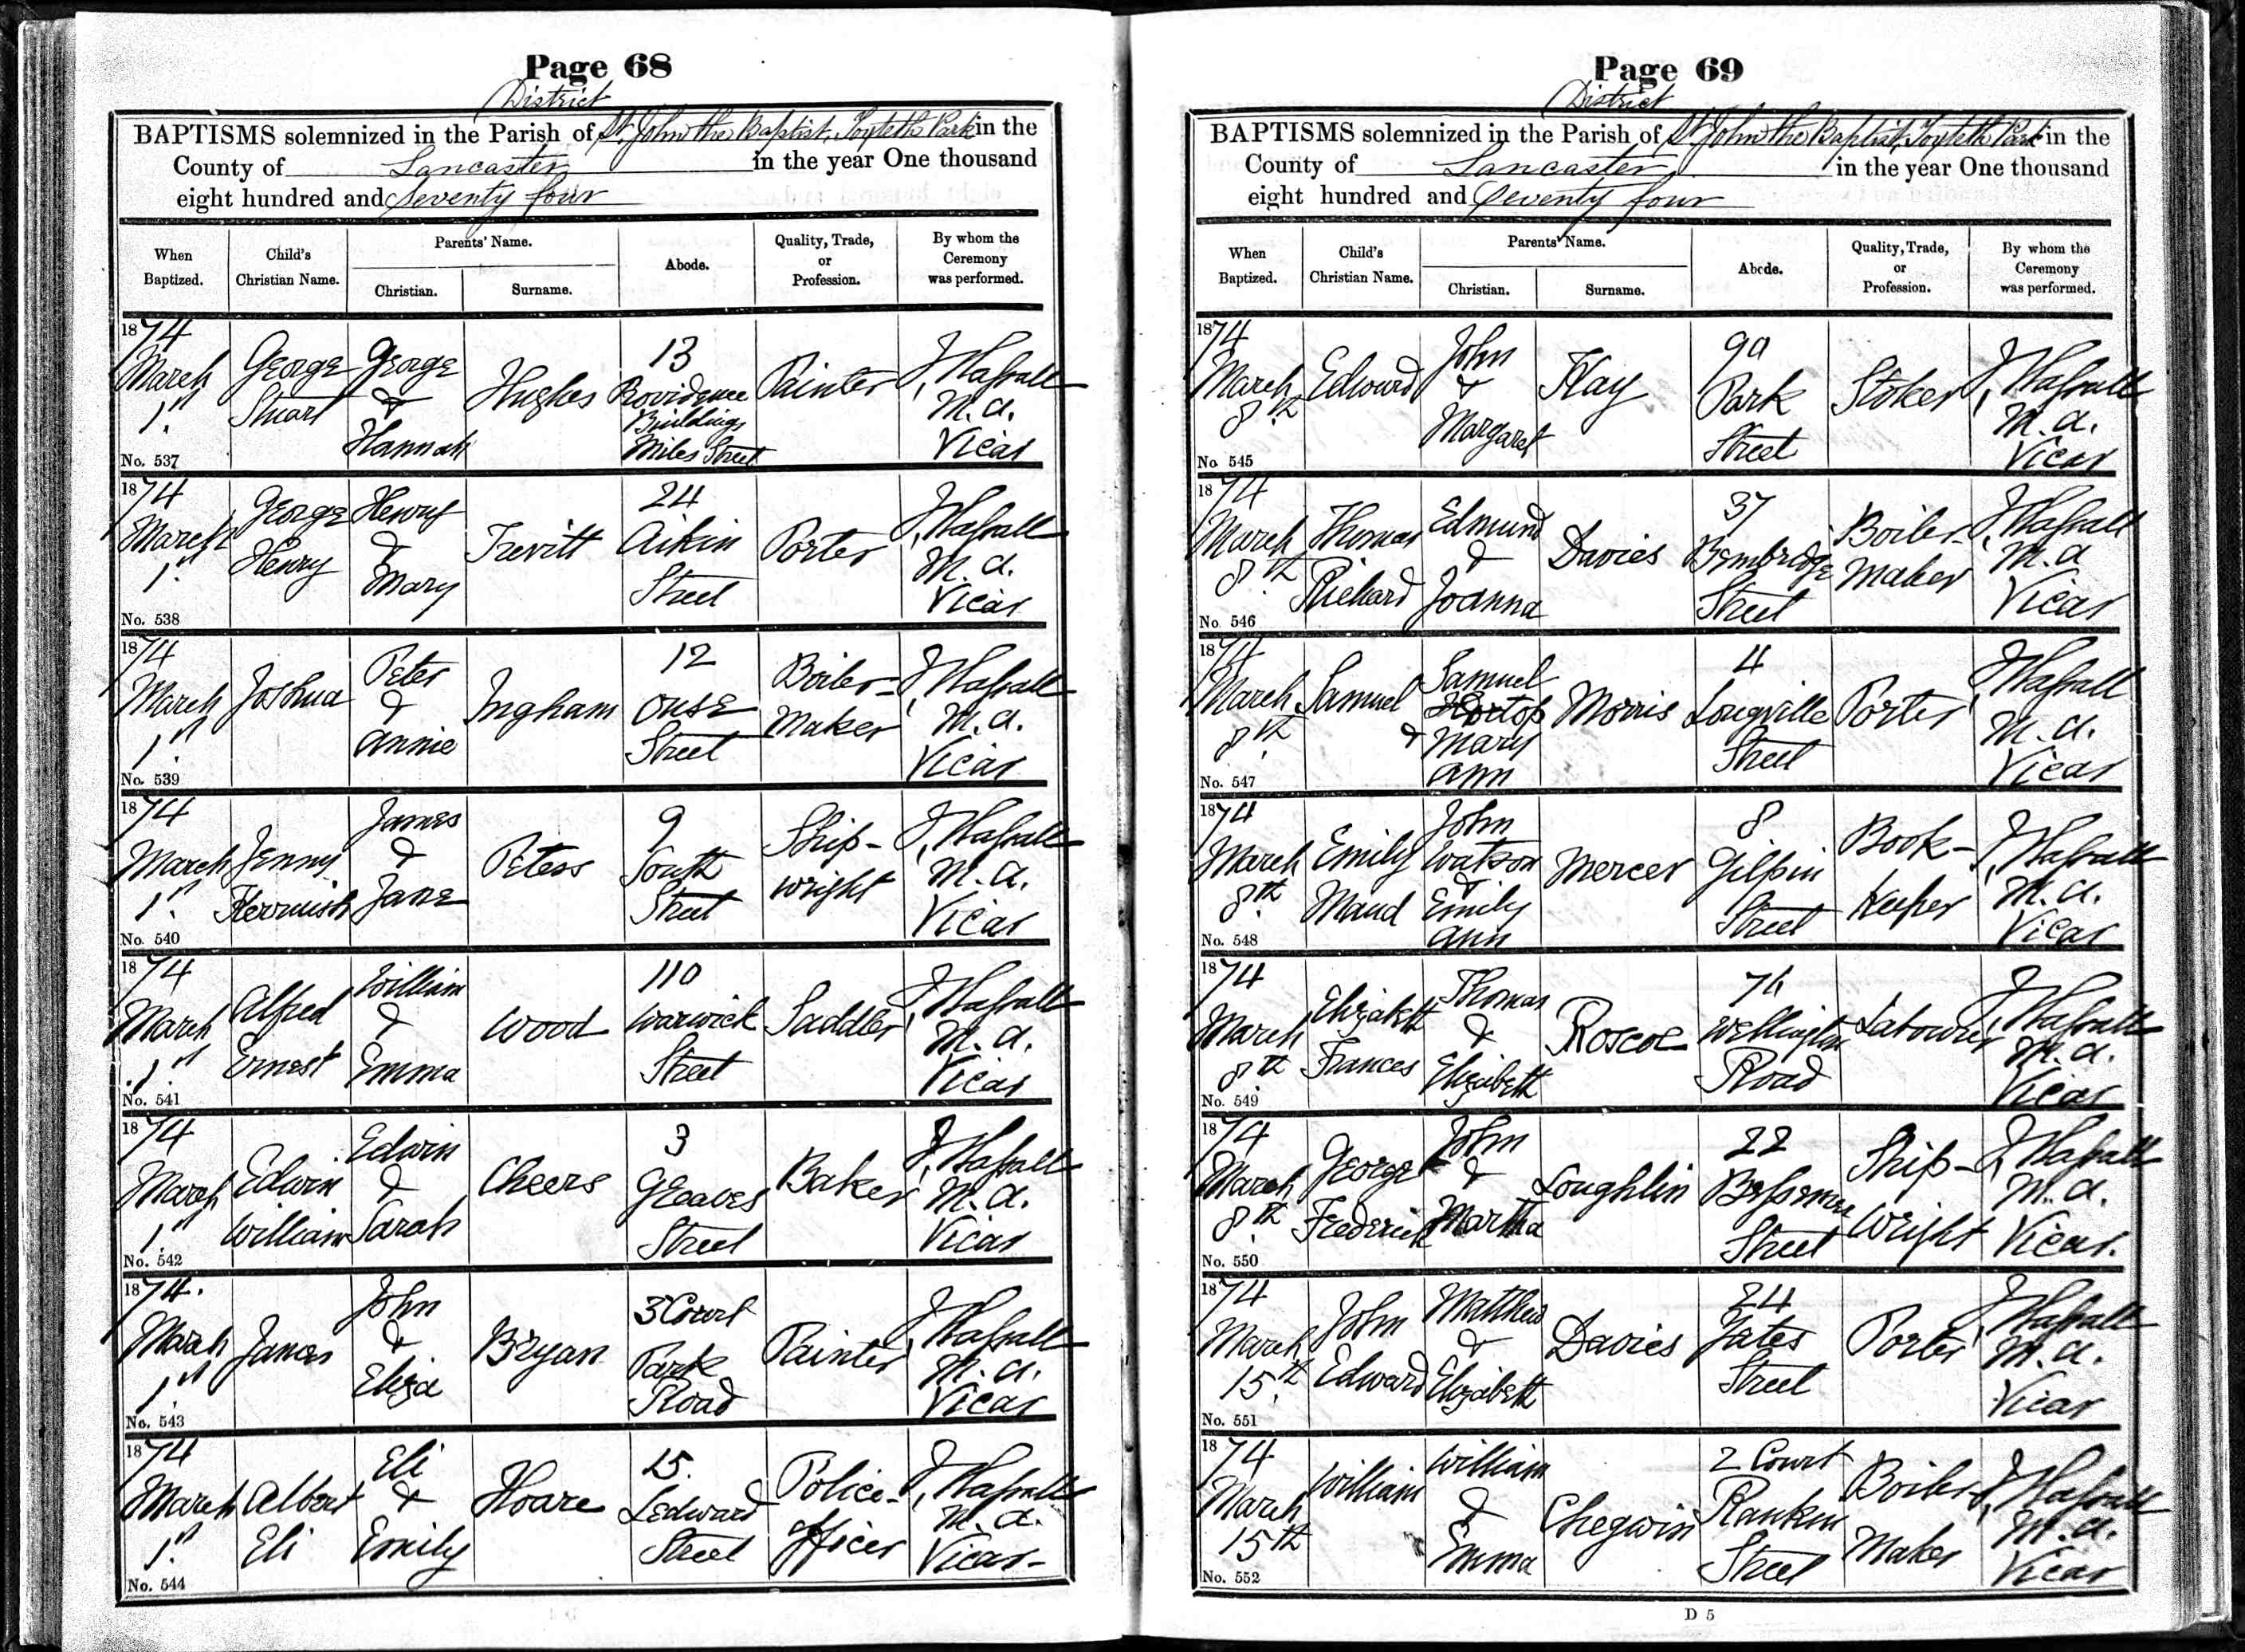 Page 68
District
BAPTISMS solemnized in the Parish of St. John the Baptist, Toxteth Park in the
County of Lancaster in the year One thousand
eight hundred and Seventy four
When Baptized. Child's Christian Name. Parents' Name. Christian. Surname. Abode. Quality, Trade, or Profession. By whom the Ceremony was performed.
1874 March 1st George Stuart George & Hannah Hughes 13 Providence Buildings Miles Street Painter J, Hassall M.A. Vicar
No. 537
1874 March 1st George Henry Henry & Mary Trevitt 24 Aikin Street Porter J, Hassall M.A. Vicar
No. 538
1874 March 1st Joshua Peter & Annie Ingham 12 Ouse Street Boiler-Maker J, Hassall M.A. Vicar
No. 539
1874 March 1st Jenny Kerruish James & Jane Peters 9 South Street Ship-wright J, Hassall M.A. Vicar
No. 540
1874 March 1st Alfred Ernest William & Emma Wood 110 Warwick Street Saddler J, Hassall M.A. Vicar
No. 541
1874 March 1st Edwin William Edwin & Sarah Cheers 3 Greaves Street Baker J, Hassall M.A. Vicar
No. 542
1874. March 1st James John & Eliza Bryan 3 Court Park Road Painter J, Hassall M.A. Vicar
No. 543
1874 March 1st Albert Eli Eli & Emily Hoare 15. Ledward Street Police-Officer J, Hassall M.A. Vicar-
No. 544
Page 69
District
BAPTISMS solemnized in the Parish of St John the Baptist, Toxteth Park in the
County of Lancaster in the year One thousand
eight hundred and Seventy four
When Baptized. Child's Christian Name. Parents' Name. Christian. Surname. Abode. Quality, Trade, or Profession. By whom the Ceremony was performed.
1874 March 8th Edward John & Margaret Kay Park Street Stoker J, Hassall M.A. Vicar
No 545
1874 March 8th Thomas Richard Edmund & Joanna Davies 37 Bembridge Street Boiler-Maker J, Hassall M.A Vicar
No. 546
1874 March 8th Samuel Samuel & Mary Ann Morris 4 Longville Street Porter J, Hassall M.A. Vicar
No. 547
1874 March 8th Emily Maud John Watson & Emily Ann Mercer 8 Gilpin Street Book-Keeper J, Hassall M.A. Vicar
No. 548
1874 March 8th Elizabeth Frances Thomas & Elizabeth Roscoe Wellington Road Labourer J, Hassall M.A. Vicar
No. 549
1874 March 8th George Frederick John & Martha Loughlin 22 Bessemer Street Ship-Wright J, Hassall M.A. Vicar.
No. 550
1874 March 15th John Edward Matthew & Elizabeth Davies 24 Yates Street Porter J, Hassall M.A. Vicar
No. 551
1874 March 15th William William & Emma Chegwin 2 Court Rankin Street Boiler Maker J, Hassall M.A. Vicar
No. 552
D 5